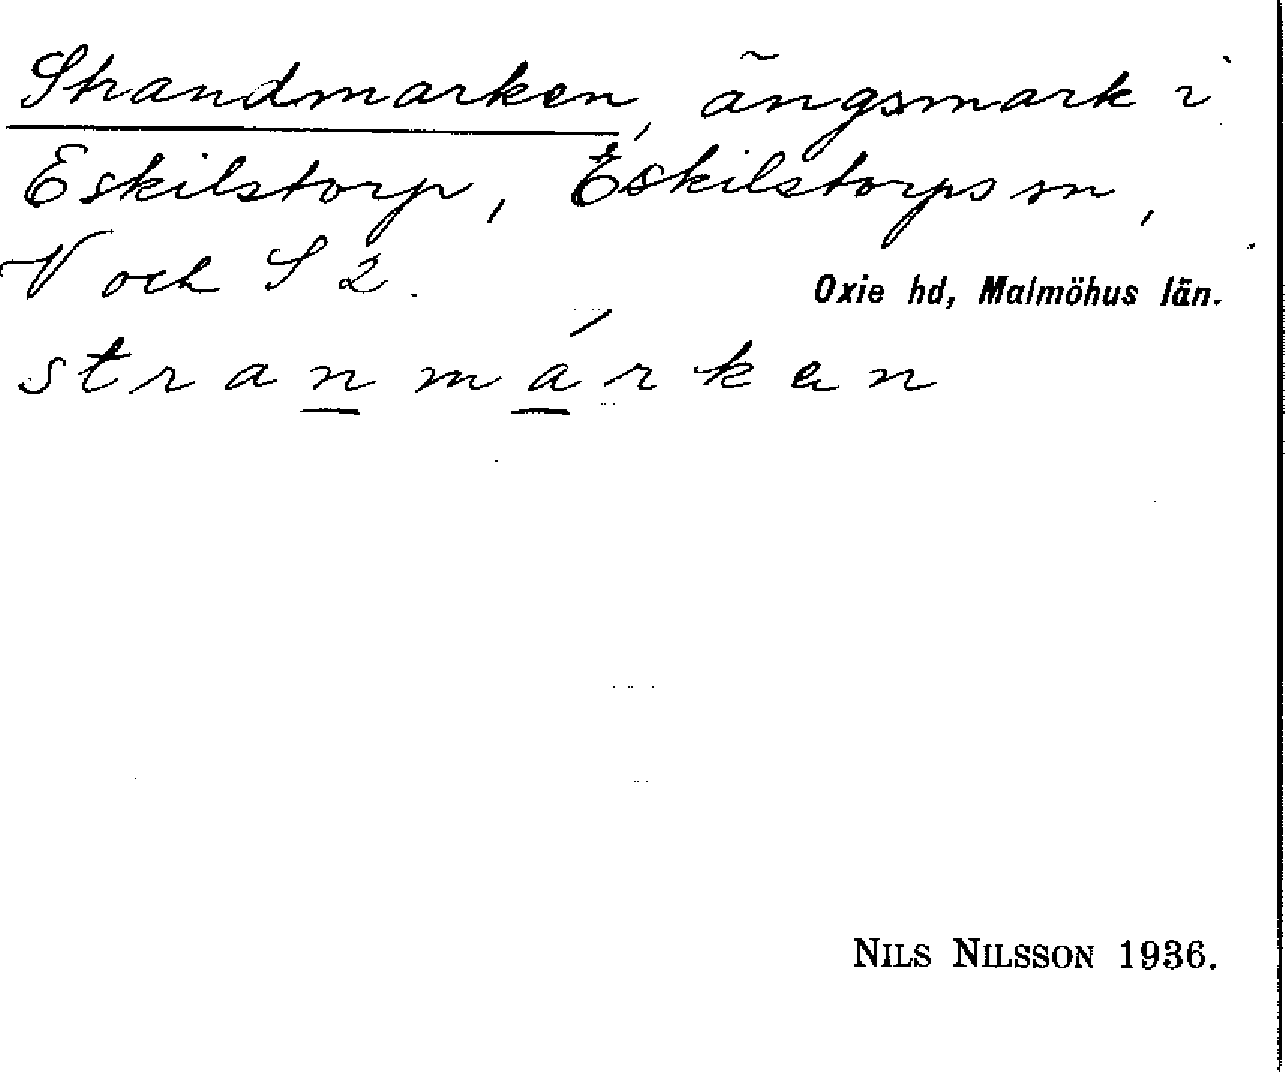 Strandmarken, ängsmark i
Eskilstorp, Eskilstorps sn,
N och S 2.
Oxie hd, Malmöhus län.
stran̲má̲rken
NILS NILSSON 1936.